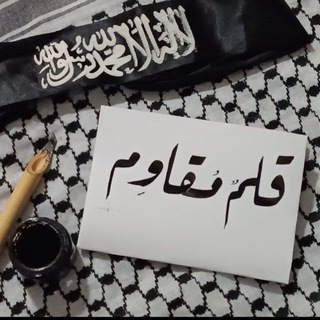 لا إله إلا الله محمد رسول الله
قلمٌ مُقاوِم